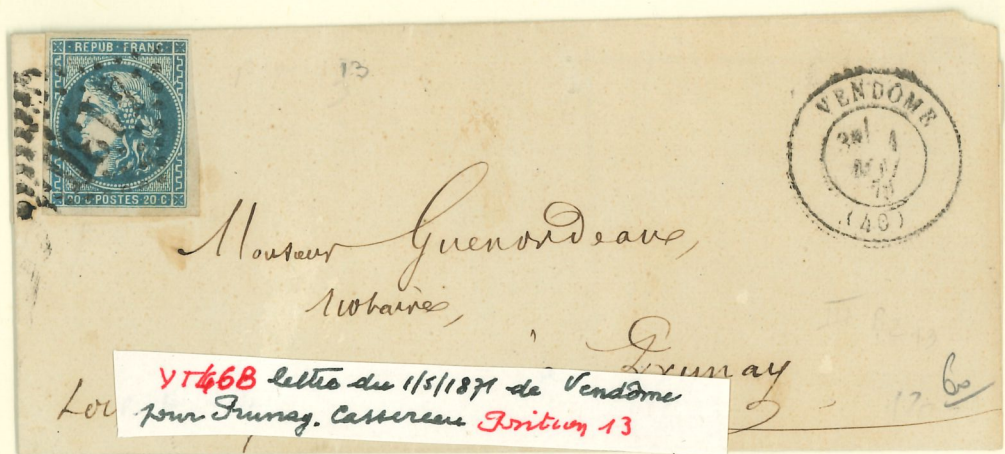 REPUB · FRANC
20 C POSTES 20 C
13
VENDOME
1
(40)
Monsieur Guenordeaux,
Notaire,
à Prunay
60
YT46B lettre du 1/5/1871 de Vendôme
pour Prunay. Cassereau Position 13